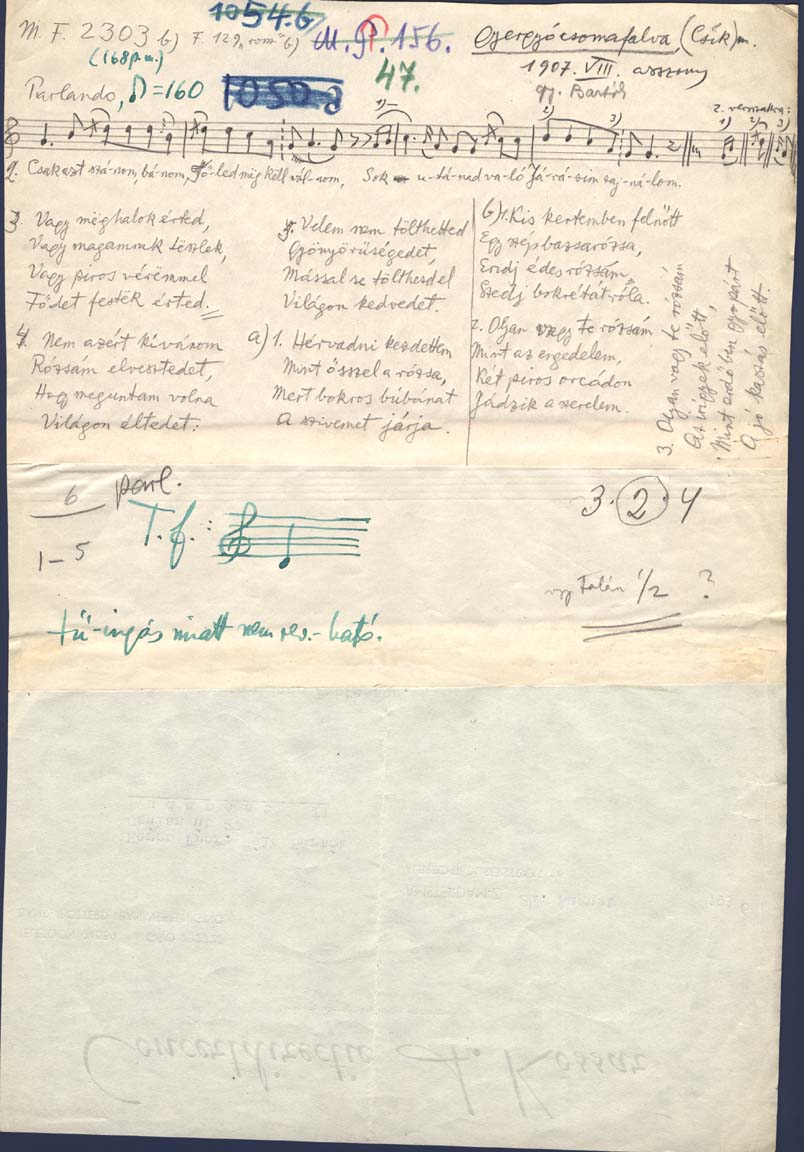 1054.b
M. F. 2303 b) F. 129 „rom" b) M. P. 156. Gyergyócsomafalva, (Csík) m.
(168 p. m.) 47. 1907. VIII. asszony
Parlando, ♪=160 1050 gy. Bartók
2. versszakra:
1) 3) 1) 2) 3)
2. Csak azt szá-nom, bá-nom, Tő-led még kell vál-nom, Sok u-tá-nad va-ló Já-rá-sim saj-ná-lom.
3. Vagy méghalok érted,
Vagy magammk tészlek,
Vagy piros vérëmmel
Födet festëk érted.
4. Nem azért kívánom
Rózsám elvesztedet,
Hogy meguntam volna
Világon éltedet:
5. Velem nem tölthetted
Gyönyörűségedet,
Mással se tölthesd el
Világon kedvedet.
a) 1. Hérvadni kezdettem
Mint ősszel a rózsa,
Mert bokros búbánat
A szivemet járja.
b) 1. Kis kertemben felnőtt
Egy szép bazsarózsa,
Eridj édes rózsám,
Szedj bokrétát róla.
2. Olyan vagy te rózsám
Mint az engedelem,
Két piros orcádon
Jádzik a szerelem.
3. Olyan vagy te rózsám
Az irígyek előtt,
Mint erdőben gyopárt
A jó kaszás előtt.
6 parl.
1-5
T. f. :
3. 2. 4
Talán 1/2 ?
tű-ingás miatt nem rev.-ható.
AMSTERDAM-Z
Concertdirectie